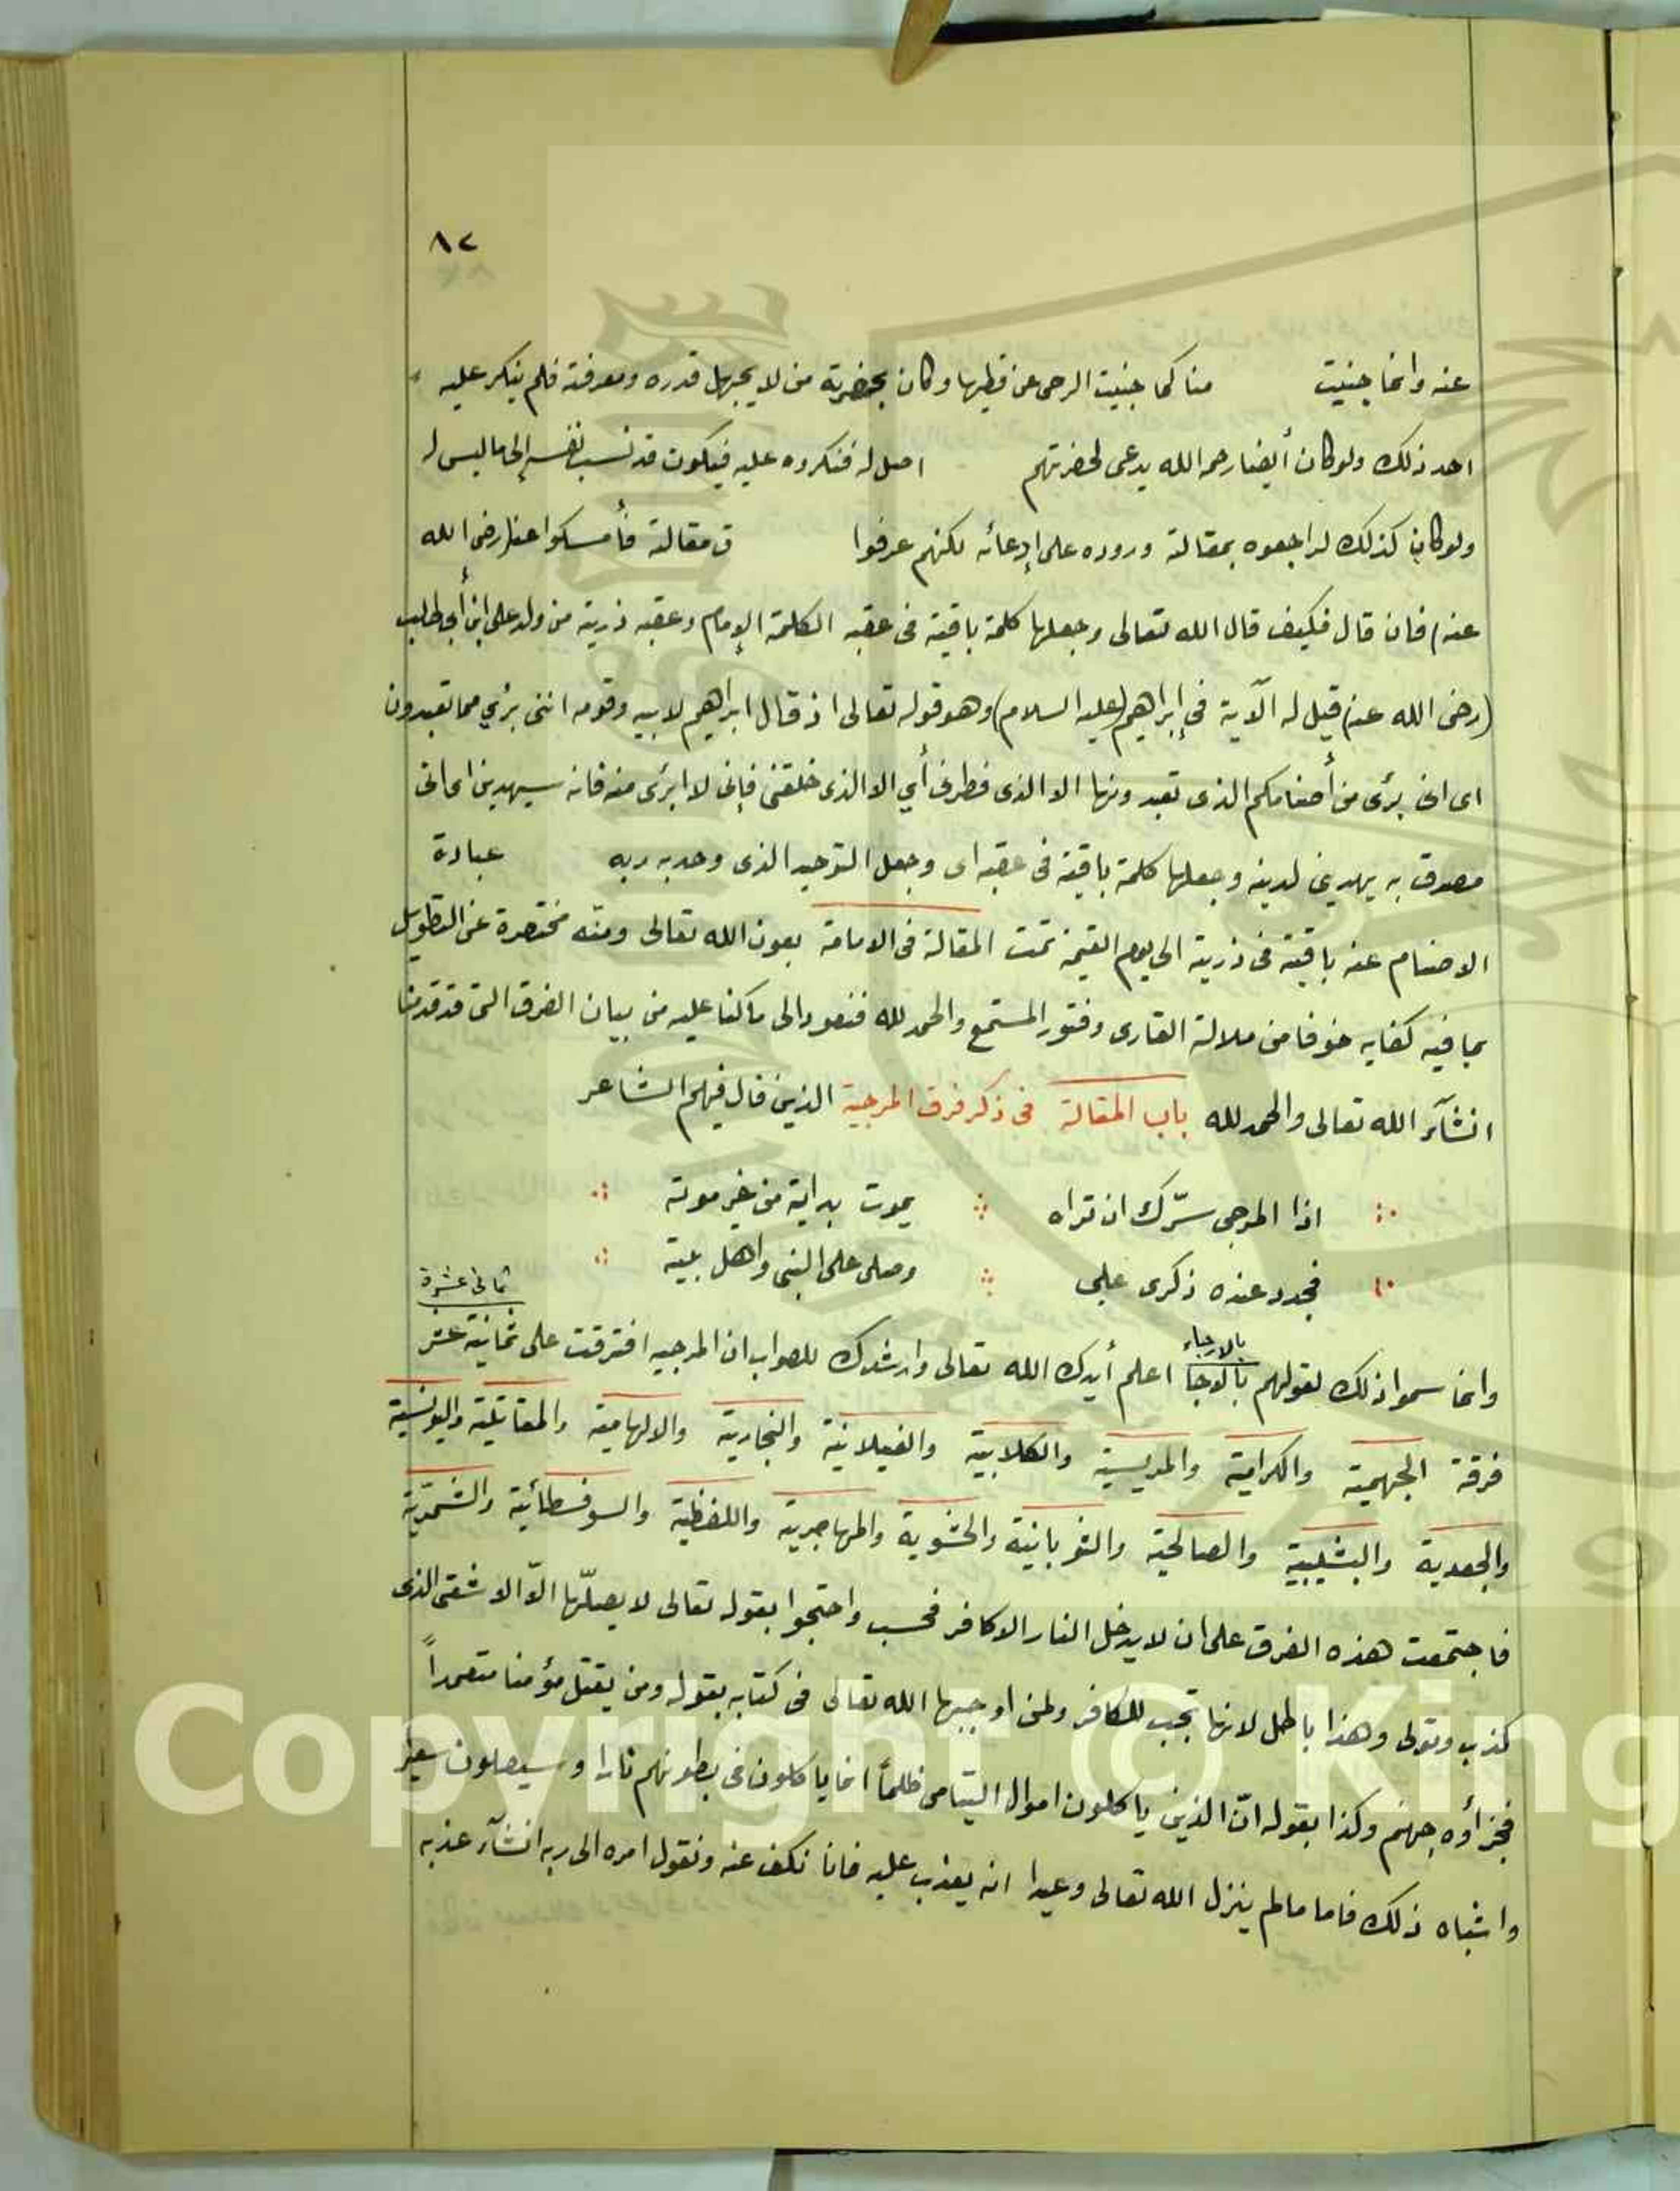 ٨٢
عنه وانما جنبت منا كما جنبت الرحى عن قطبها وكان بحضرته من لا يجهل قدره ومعرفته فلم ينكر عليه
احد ذلك ولو كان أيضا رحمه الله يدعى لحضرتهم اصل له فنكروه عليه فيكون قد نسب نفسه إلى ما ليس له
ولو كان كذلك لراجعوه بمقالة وروده على إدعائه لكنهم عرفوا ق مقالة فأمسكوا عنه (رضى الله
عنه) فان قال فكيف قال الله تعالى وجعلها كلمة باقية فى عقبه الكلمة الإمام وعقبه ذرية من ولد على ابن أبى طالب
(رضى الله عنه) قيل له الآية فى إبراهيم (عليه السلام) وهو قوله تعالى اذ قال ابراهيم لابيه وقومه اننى برئ مما تعبدون
اى انى برئ من أصنامكم الذى تعبدونها الا الذى فطرنى أي الا الذى خلقنى فإنى لا ابرئ منه فانه سيهدين اى انى
مصدق به يهدينى لدينه وجعلها كلمة باقية فى عقبه اى وجعل التوحيد الذى وحد به ربه عبادة
الاصنام عنه باقية فى ذريته الى يوم القيمة تمت المقالة فى الامامة بعون الله تعالى ومنّه مختصرة عن التطويل
بما فيه كفايه خوفا من ملالة القارى وفتور المستمع والحمد لله فنعود الى ما كنا عليه من بيان الفرق التى قد قدمنا
انشآء الله تعالى والحمد لله باب المقالة فى ذكر فرق المرجية الذين قال فيهم الشاعر
اذا المرجى سرّك ان تراه يموت بدايه من غير موته
فجدد عنده ذكرى على وصلى على النبى واهل بيته
ثمانى عشرة
بالارجاء
وانما سموا ذلك لقولهم بالاوجا اعلم أيدك الله تعالى وارشدك للصواب ان المرجيه افترقت على ثمانية عشر
فرقة الجهمية والكرامية والمريسية والكلابية والغيلانية والنجارية والالهامية والمقاتلية واليونسية
والجعدية والبشيبية والصالحية والثوبانية والحشوية والمهاجرية واللفظية والسوفسطائية والشمرية
فاجتمعت هذه الفرق على ان لا يدخل النار الا كافر فحسب واحتجوا بقوله تعالى لا يصلّها الّا الاشقى الذى
كذب وتولى وهذا باطل لانها تجب للكافر ولمن اوجبها الله تعالى فى كتابه بقوله ومن يقتل مؤمنا متعمداً
فجزأوه جهنم وكذا بقوله انّ الذين ياكلون اموال اليتامى ظلماً انما ياكلون فى بطونهم نارا وسيصلون سعيرا
واشباه ذلك فاما مالم ينزل الله تعالى وعيدا انه يعذب عليه فانا نكف عنه ونقول امره الى ربه انشآء عذبه
Copyright © King